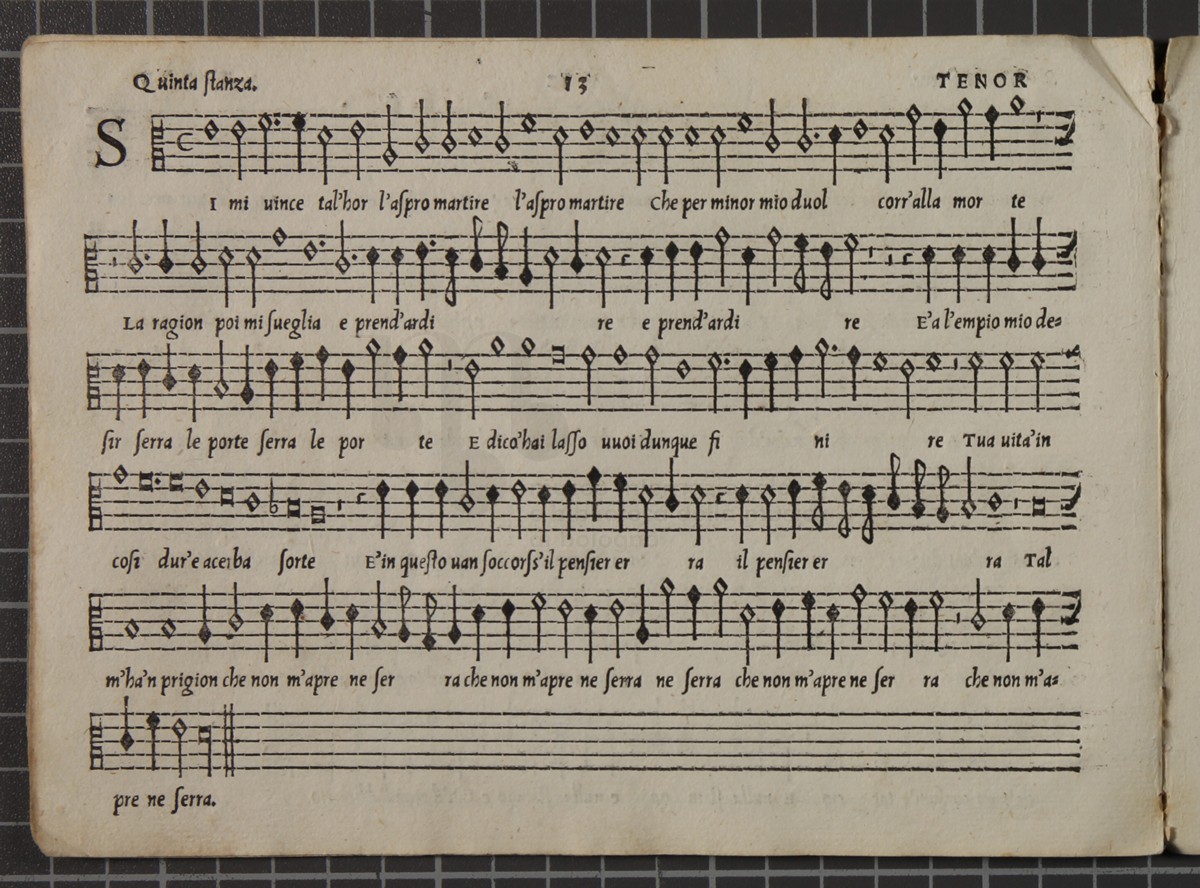 Quinta ſtanza. 13 TENOR
S
I mi uince tal'hor l'aſpro martire l'aſpro martire Che per minor mio duol corr'alla mor te
La ragion poi mi ſueglia e prend'ardi re e prend'ardi re E'a l'empio mio de=
ſir ſerra le porte ſerra le por te E dico'hai laſſo uuoi dunque fi ni re Tua uita'in
coſi dur'e acerba ſorte E'in queſto uan ſoccorſs'il penſier er ra il penſier er ra Tal
m'ha'n prigion che non m'apre ne ſer ra che non m'apre ne ſerra ne ſerra che non m'apre ne ſer ra che non m'a=
pre ne ſerra.